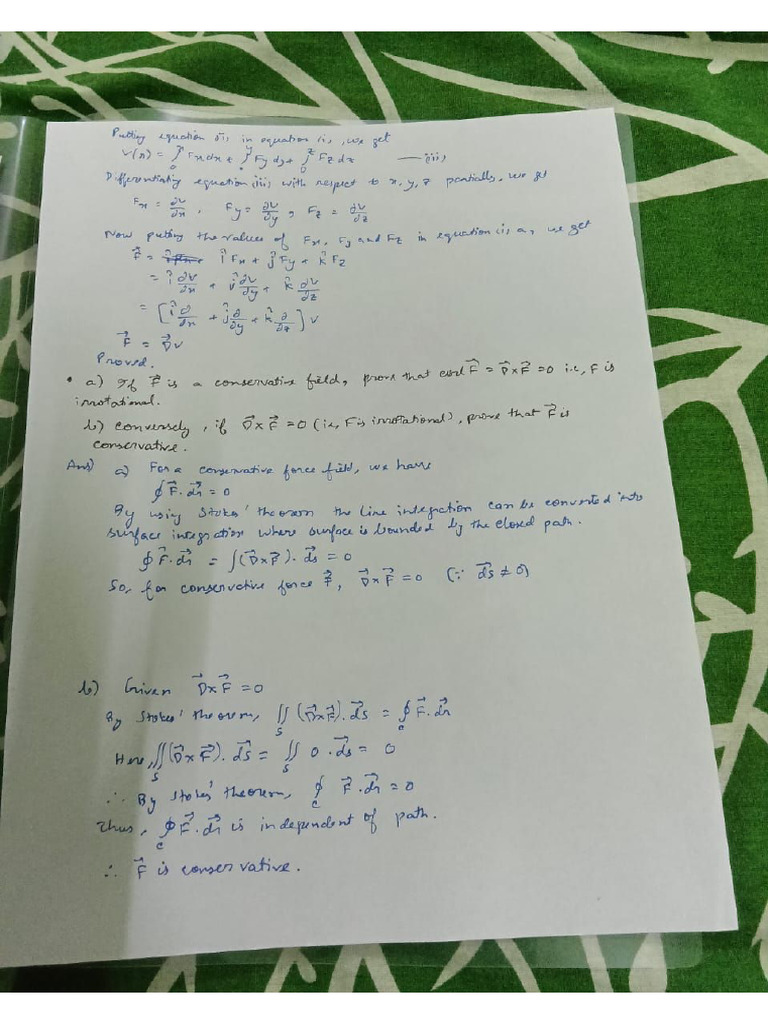 Putting equation (ii) in equation (i), we get
V(r) = ∫₀ˣ Fx dx + ∫₀ʸ Fy dy + ∫₀ᶻ Fz dz —(iii)
Differentiating equation (iii) with respect to x, y, z partially, we get
Fx = ∂V/∂x , Fy = ∂V/∂y , Fz = ∂V/∂z
Now putting the values of Fx, Fy and Fz in equation (i) a, we get
F⃗ = îFx + ĵFy + k̂Fz
= î ∂V/∂x + ĵ ∂V/∂y + k̂ ∂V/∂z
= [î ∂/∂x + ĵ ∂/∂y + k̂ ∂/∂z] V
F⃗ = ∇⃗V
Proved.
• a) If F⃗ is a conservative field, prove that curl F⃗ = ∇⃗×F⃗ = 0 i.e, F is
irrotational.
b) conversely, if ∇⃗×F⃗ = 0 (i.e, F is irrotational), prove that F⃗ is
conservative.
Ans) a) For a conservative force field, we have
∮F⃗.dr⃗ = 0
By using Stokes' theorem the line integration can be converted into
surface integration where surface is bounded by the closed path.
∮F⃗.dr⃗ = ∫(∇⃗×F⃗).ds⃗ = 0
So, for conservative force F⃗, ∇⃗×F⃗ = 0 (∵ ds⃗ ≠ 0)
b) Given ∇⃗×F⃗ = 0
By Stokes' theorem, ∬_S (∇⃗×F⃗).ds⃗ = ∮_C F⃗.dr⃗
Here, ∬_S (∇⃗×F⃗).ds⃗ = ∬_S 0.ds⃗ = 0
∴ By Stokes' theorem, ∮_C F⃗.dr⃗ = 0
Thus, ∮_C F⃗.dr⃗ is independent of path.
∴ F⃗ is conservative.